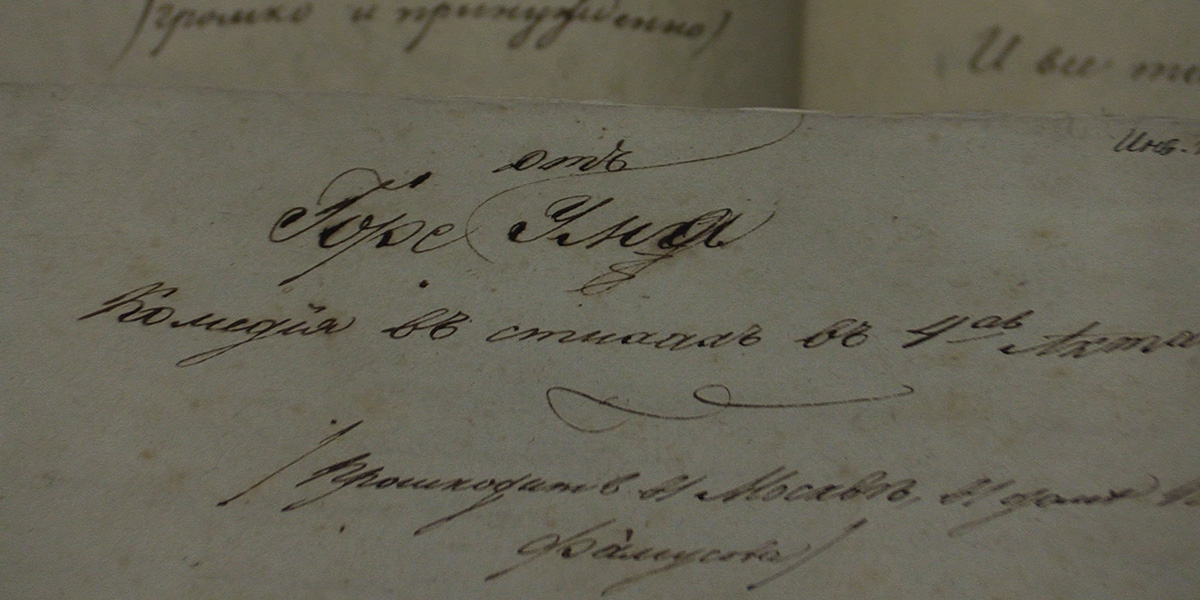 (громко и принужденно)
И
Инв.
отъ
Горе Ума
Комедія въ стихахъ въ 4хъ Акта
(Происходитъ въ Москвѣ, въ домѣ
Фамусова)